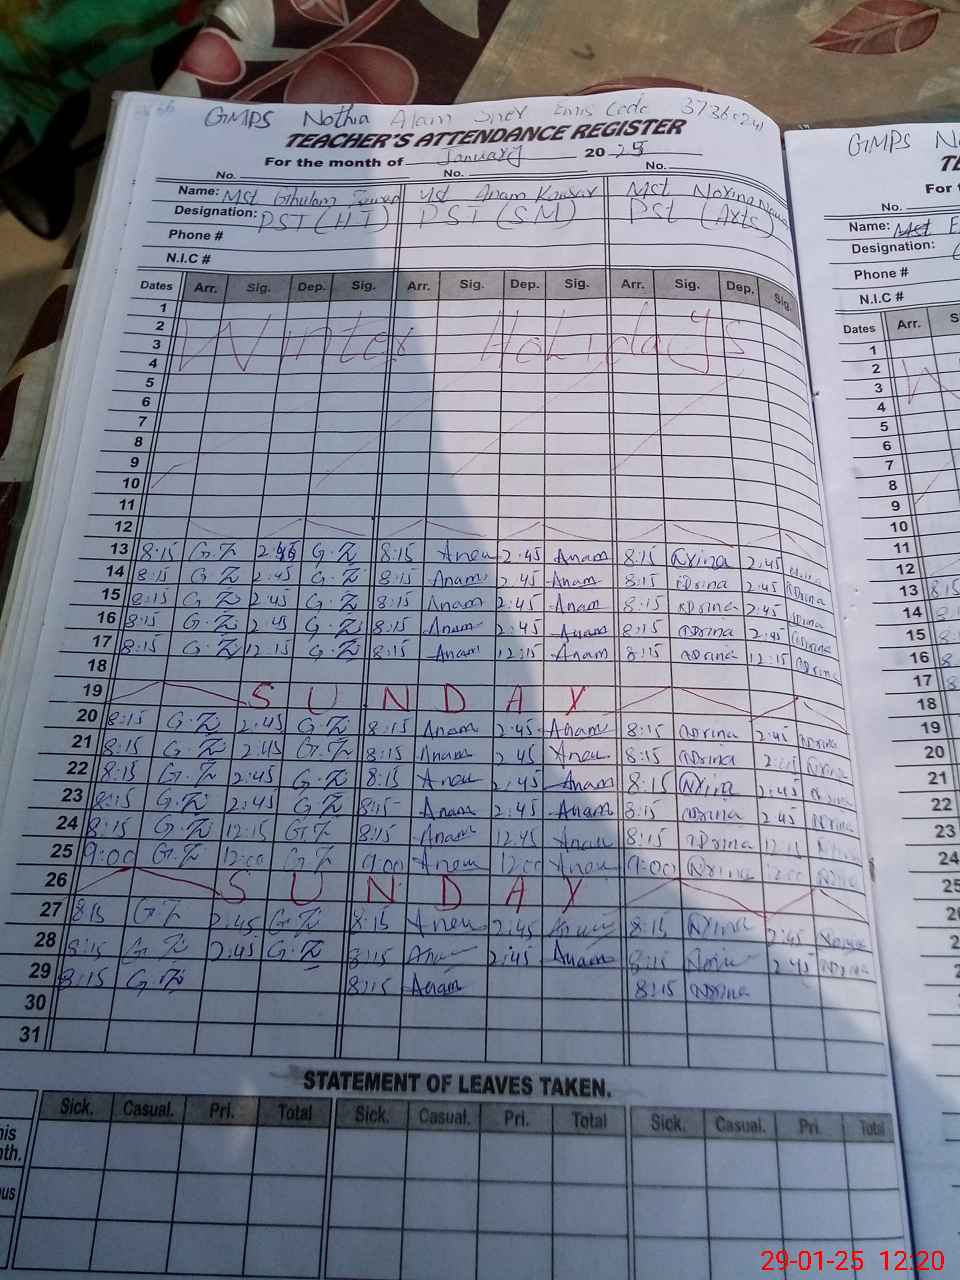 GMPS Nothia Alam Sher Emis Code 37360241
TEACHER'S ATTENDANCE REGISTER
For the month of January 2025
No. No. No.
Name: Mst Ghulam Mst Anam Kausar Mst Norina
Designation: PST (H.T) PST (SM) Pst (Arts)
Phone #
N.I.C #
Dates Arr. Sig. Dep. Sig. Arr. Sig. Dep. Sig. Arr. Sig. Dep. Sig.
1
2 Winter Holidays
3
4
5
6
7
8
9
10
11
12
13 8:15 G.Z 2:45 G.Z 8:15 Anam 2:45 Anam 8:15 Norina 2:45 Norina
14 8:15 G.Z 2:45 G.Z 8:15 Anam 2:45 Anam 8:15 Norina 2:45 Norina
15 8:15 G.Z 2:45 G.Z 8:15 Anam 2:45 Anam 8:15 Norina 2:45 Norina
16 8:15 G.Z 2:45 G.Z 8:15 Anam 2:45 Anam 8:15 Norina 2:45 Norina
17 8:15 G.Z 12:15 G.Z 8:15 Anam 12:15 Anam 8:15 Norina 12:15 Norina
18
19 SUNDAY
20 8:15 G.Z 2:45 G.Z 8:15 Anam 2:45 Anam 8:15 Norina 2:45 Norina
21 8:15 G.Z 2:45 G.Z 8:15 Anam 2 45 Anam 8:15 Norina 2:45 Norina
22 8:15 G.Z 2:45 G.Z 8:15 Anam 2:45 Anam 8:15 Norina 2:45 Norina
23 8:15 G.Z 2:45 G.Z 8:15 Anam 2:45 Anam 8:15 Norina 2 45 Norina
24 8:15 G.Z 12:15 G.Z 8:15 Anam 12:45 Anam 8:15 Norina 12:15 Norina
25 9:00 G.Z 12:00 G.Z 9:00 Anam 12:00 Anam 9:00 Norina 12:00 Norina
26 SUNDAY
27 8:15 G.Z 2:45 G.Z 8:15 Anam 2:45 Anam 8:15 Norina 2:45 Norina
28 8:15 G.Z 2:45 G.Z 8:15 Anam 2:45 Anam 8:15 Norina 2:45 Norina
29 8:15 G.Z 8:15 Anam 8:15 Norina
30
31
STATEMENT OF LEAVES TAKEN.
Sick. Casual. Pri. Total Sick. Casual. Pri. Total Sick. Casual. Pri. Total
his
nth.
ous
GMPS No
TE
For t
No.
Name: Mst
Designation:
Phone #
N.I.C #
Dates Arr. S
1
2
3
4
5
6
7
8
9
10
11
12
13 8:15
14 8:
15 8:
16 8
17 8
18
19
20
21
22
23
24
25
29-01-25 12:20